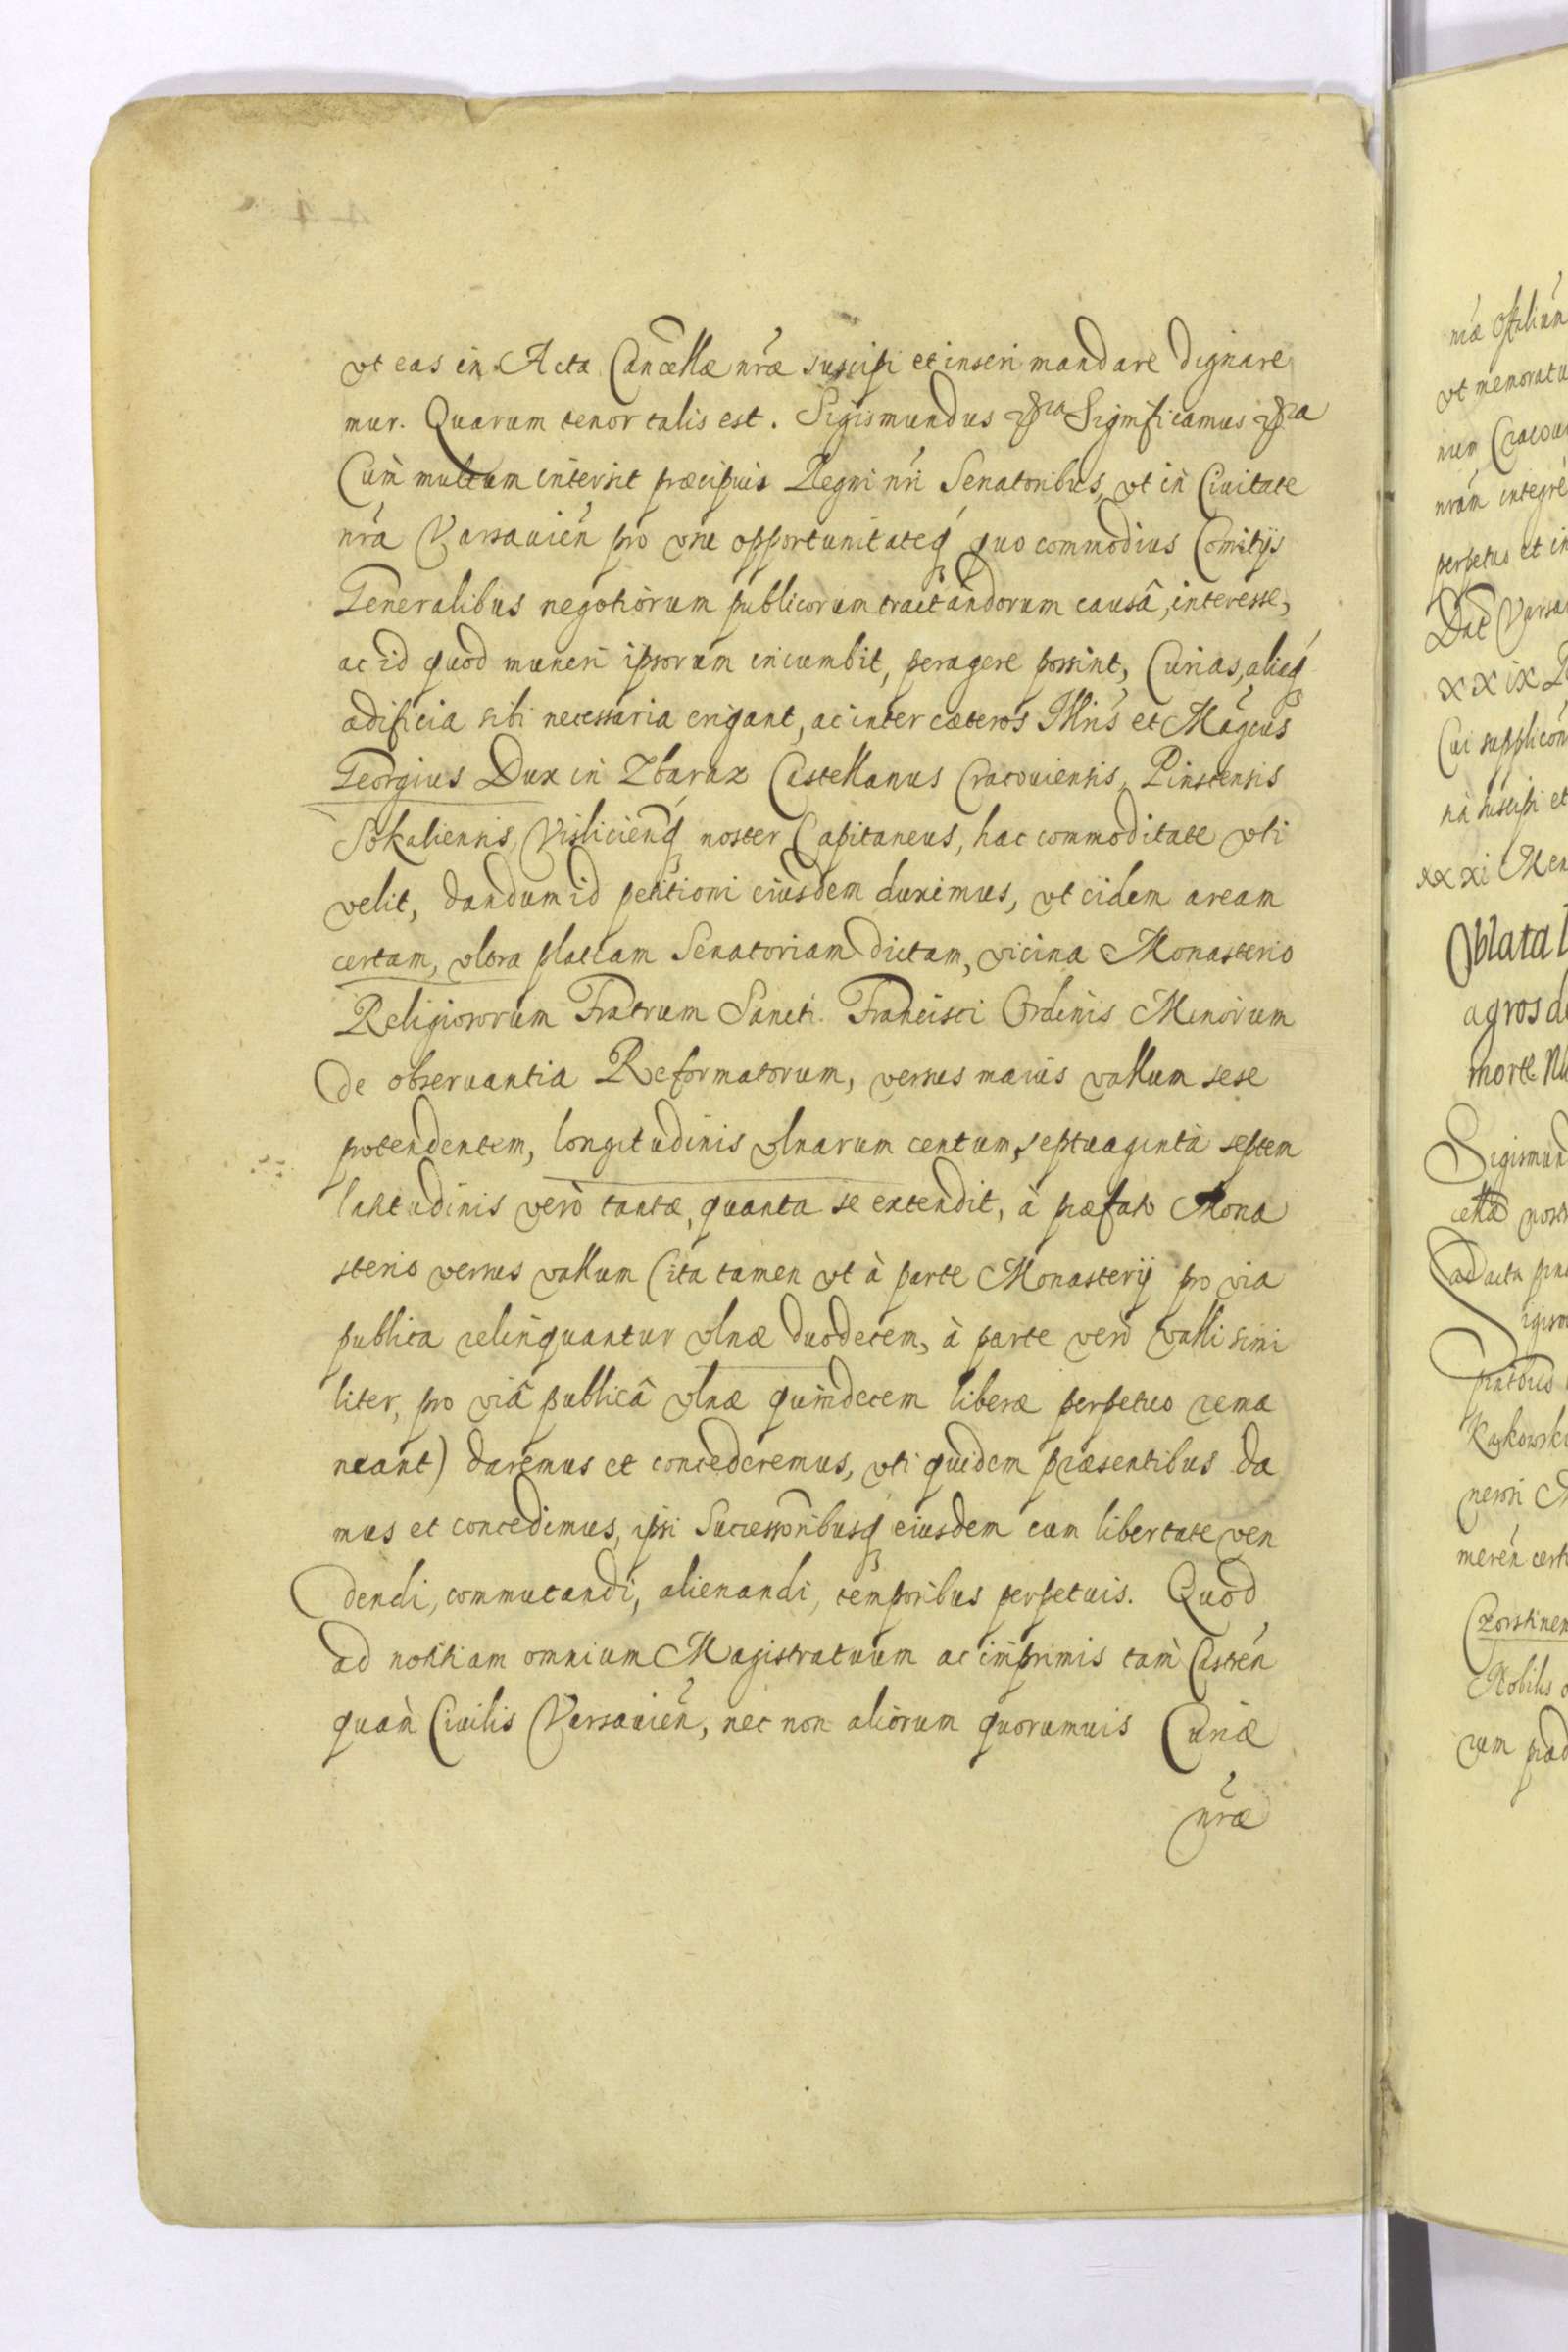 vt eas in Acta Cancellæ nræ suscipi et inseri mandare dignare
mur. Quarum tenor talis est. Sigismundus &ra Significamus &ra
Cum multum intersit præcipuis Regni nri Senatoribus, vt in Ciuitate
nra Varsauien pro vsu opportunitateq quo commodius Comitijs
Generalibus negotiorum publicorum tractandorum causâ, interesse,
ac id quod muneri ipsorum incumbit, peragere possint, Curias, aliaq
ædificia sibi necessaria erigant, ac inter cæteros Illris et Magcus
Georgius Dux in Zbaraz Castellanus Cracouiensis, Pinscensis
Sokaliensis, Visliciensq noster Capitaneus, hac commoditate vti
velit, dandum id petitioni eiusdem duximus, vt eidem aream
certam, vltra plateam Senatoriam dictam, vicina Monasterio
Religiosorum Fratrum Sancti Francisci Ordinis Minorum
de obseruantia Reformatorum, versus maius vallum sese
protendentem, longitudinis vlnarum centum, septuaginta septem
latitudinis verò tantæ, quanta se extendit, à præfato Mona
sterio versus vallum (ita tamen vt à parte Monasterij pro via
publica relinquantur vlnæ duodecem, à parte verò valli simi
liter, pro viâ publicâ vlnæ quindecem liberæ perpetuo rema
neant) daremus et concederemus, vti quidem præsentibus da
mus et concedimus, ipsi Successoribusq eiusdem cum libertate ven
dendi, commutandi, alienandi, temporibus perpetuis. Quod
ad notitiam omnium Magistratuum ac imprimis tam Castren
quàm Ciuilis Varsauien, nec non aliorum quorumuis Curiæ
nræ
nræ
vt memoratu
num Cracoui
nram integre
perpetuo et in
Dat Varsa
xxix
Cui supplicon
na suscipi et
xxxi Men
Oblata
agros d
morte
Sigismund
cella nost
ad acta
Kaykowski
nerosi
meren cert
Czorstinen
Nobilis
rum præd